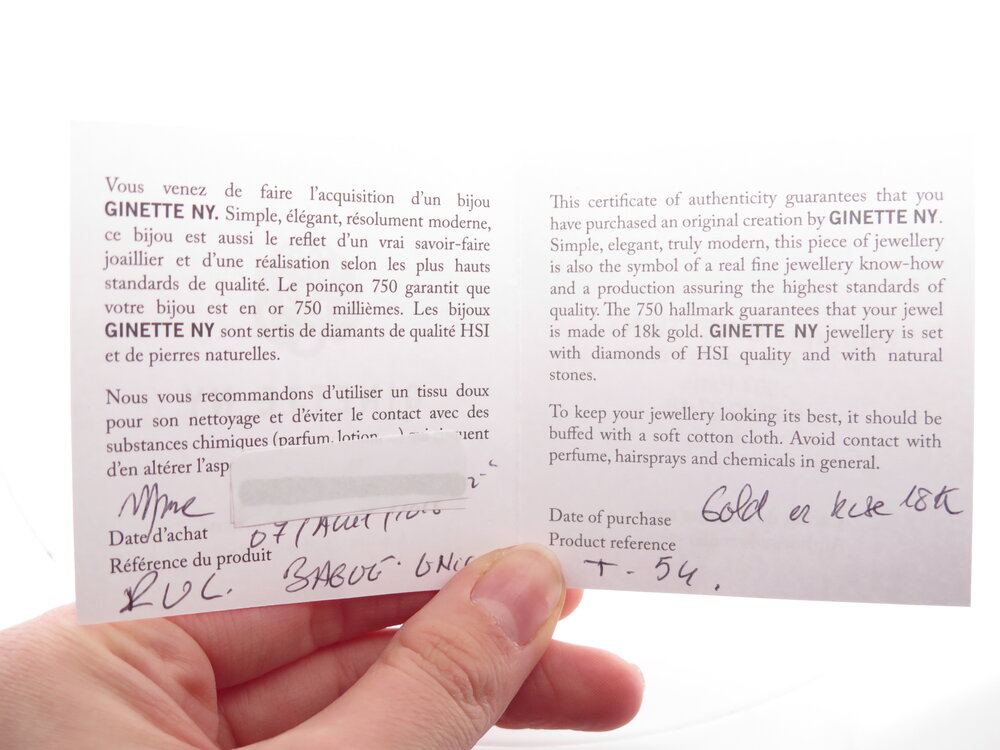 Vous venez de faire l'acquisition d'un bijou
GINETTE NY. Simple, élégant, résolument moderne,
ce bijou est aussi le reflet d'un vrai savoir-faire
joaillier et d'une réalisation selon les plus hauts
standards de qualité. Le poinçon 750 garantit que
votre bijou est en or 750 millièmes. Les bijoux
GINETTE NY sont sertis de diamants de qualité HSI
et de pierres naturelles.
Nous vous recommandons d'utiliser un tissu doux
pour son nettoyage et d'éviter le contact avec des
substances chimiques (parfum, lotion
d'en altérer l'asp
Mme
Date d'achat 07/
Référence du produit
This certificate of authenticity guarantees that you
have purchased an original creation by GINETTE NY.
Simple, elegant, truly modern, this piece of jewellery
is also the symbol of a real fine jewellery know-how
and a production assuring the highest standards of
quality. The 750 hallmark guarantees that your jewel
is made of 18k gold. GINETTE NY jewellery is set
with diamonds of HSI quality and with natural
stones.
To keep your jewellery looking its best, it should be
buffed with a soft cotton cloth. Avoid contact with
perfume, hairsprays and chemicals in general.
Date of purchase Gold 18K
Product reference
T - 54.